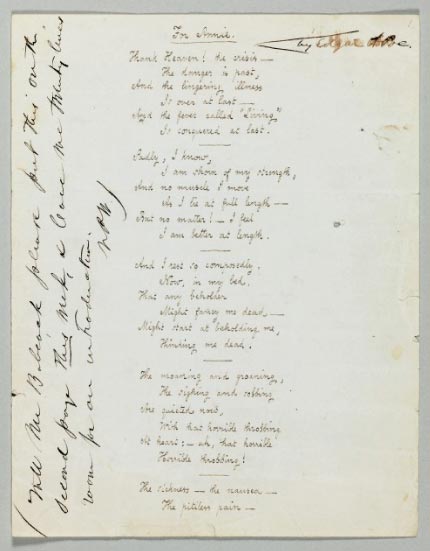 For Annie.
by Edgar A Poe.
Thank Heaven! the crisis —
The danger is past,
And the lingering illness
Is over at last —
And the fever called "Living"
Is conquered at last.
Sadly, I know,
I am shorn of my strength,
And no muscle I move
As I lie at full length —
But no matter! — I feel
I am better at length.
And I rest so composedly,
Now, in my bed,
That any beholder
Might fancy me dead —
Might start at beholding me,
Thinking me dead.
The moaning and groaning,
The sighing and sobbing
Are quieted now,
With that horrible throbbing
At heart: — ah, that horrible
Horrible throbbing!
The sickness — the nausea —
The pitiless pain —
(Will Mr Babcock please put this on the
second page this week, & leave me twenty lines
room for an introduction.
NPW)